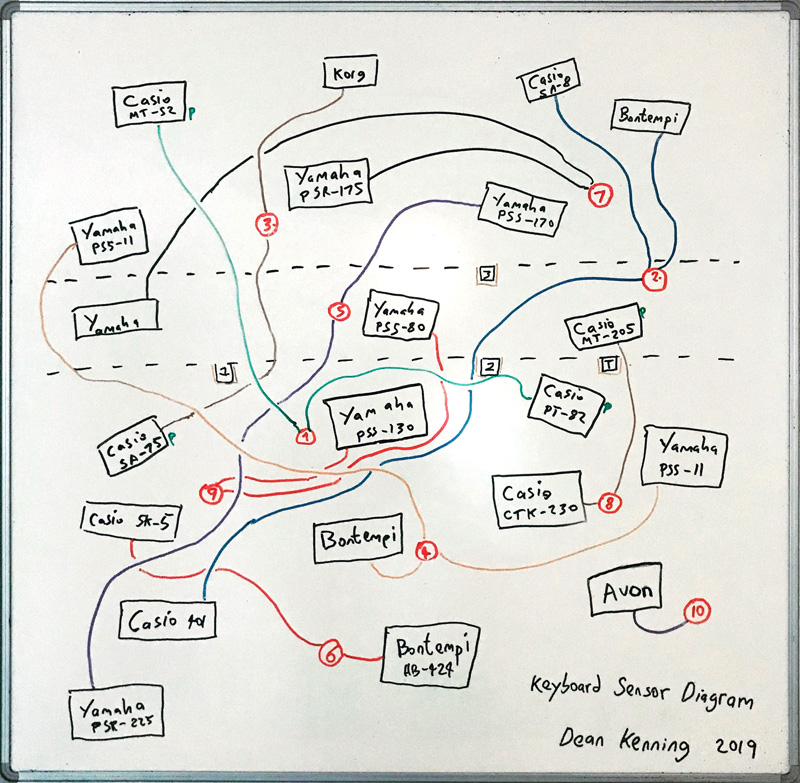 Korg
Casio
SA-8
Casio
MT-52
P
Bontempi
Yamaha
PSR-175
7
Yamaha
PSS-170
3
Yamaha
PSS-11
3
2
Yamaha
5
Yamaha
PSS-80
P
Casio
MT-205
2
1
Yamaha
PSS-130
Casio
PT-82
P
Casio
SA-75
P
1
Yamaha
PSS-11
9
Casio
CTK-230
8
Casio SK-5
Bontempi
4
Avon
10
Casio 401
6
Bontempi
HB-424
Keyboard Sensor Diagram
Yamaha
PSR-225
Dean Kenning 2019